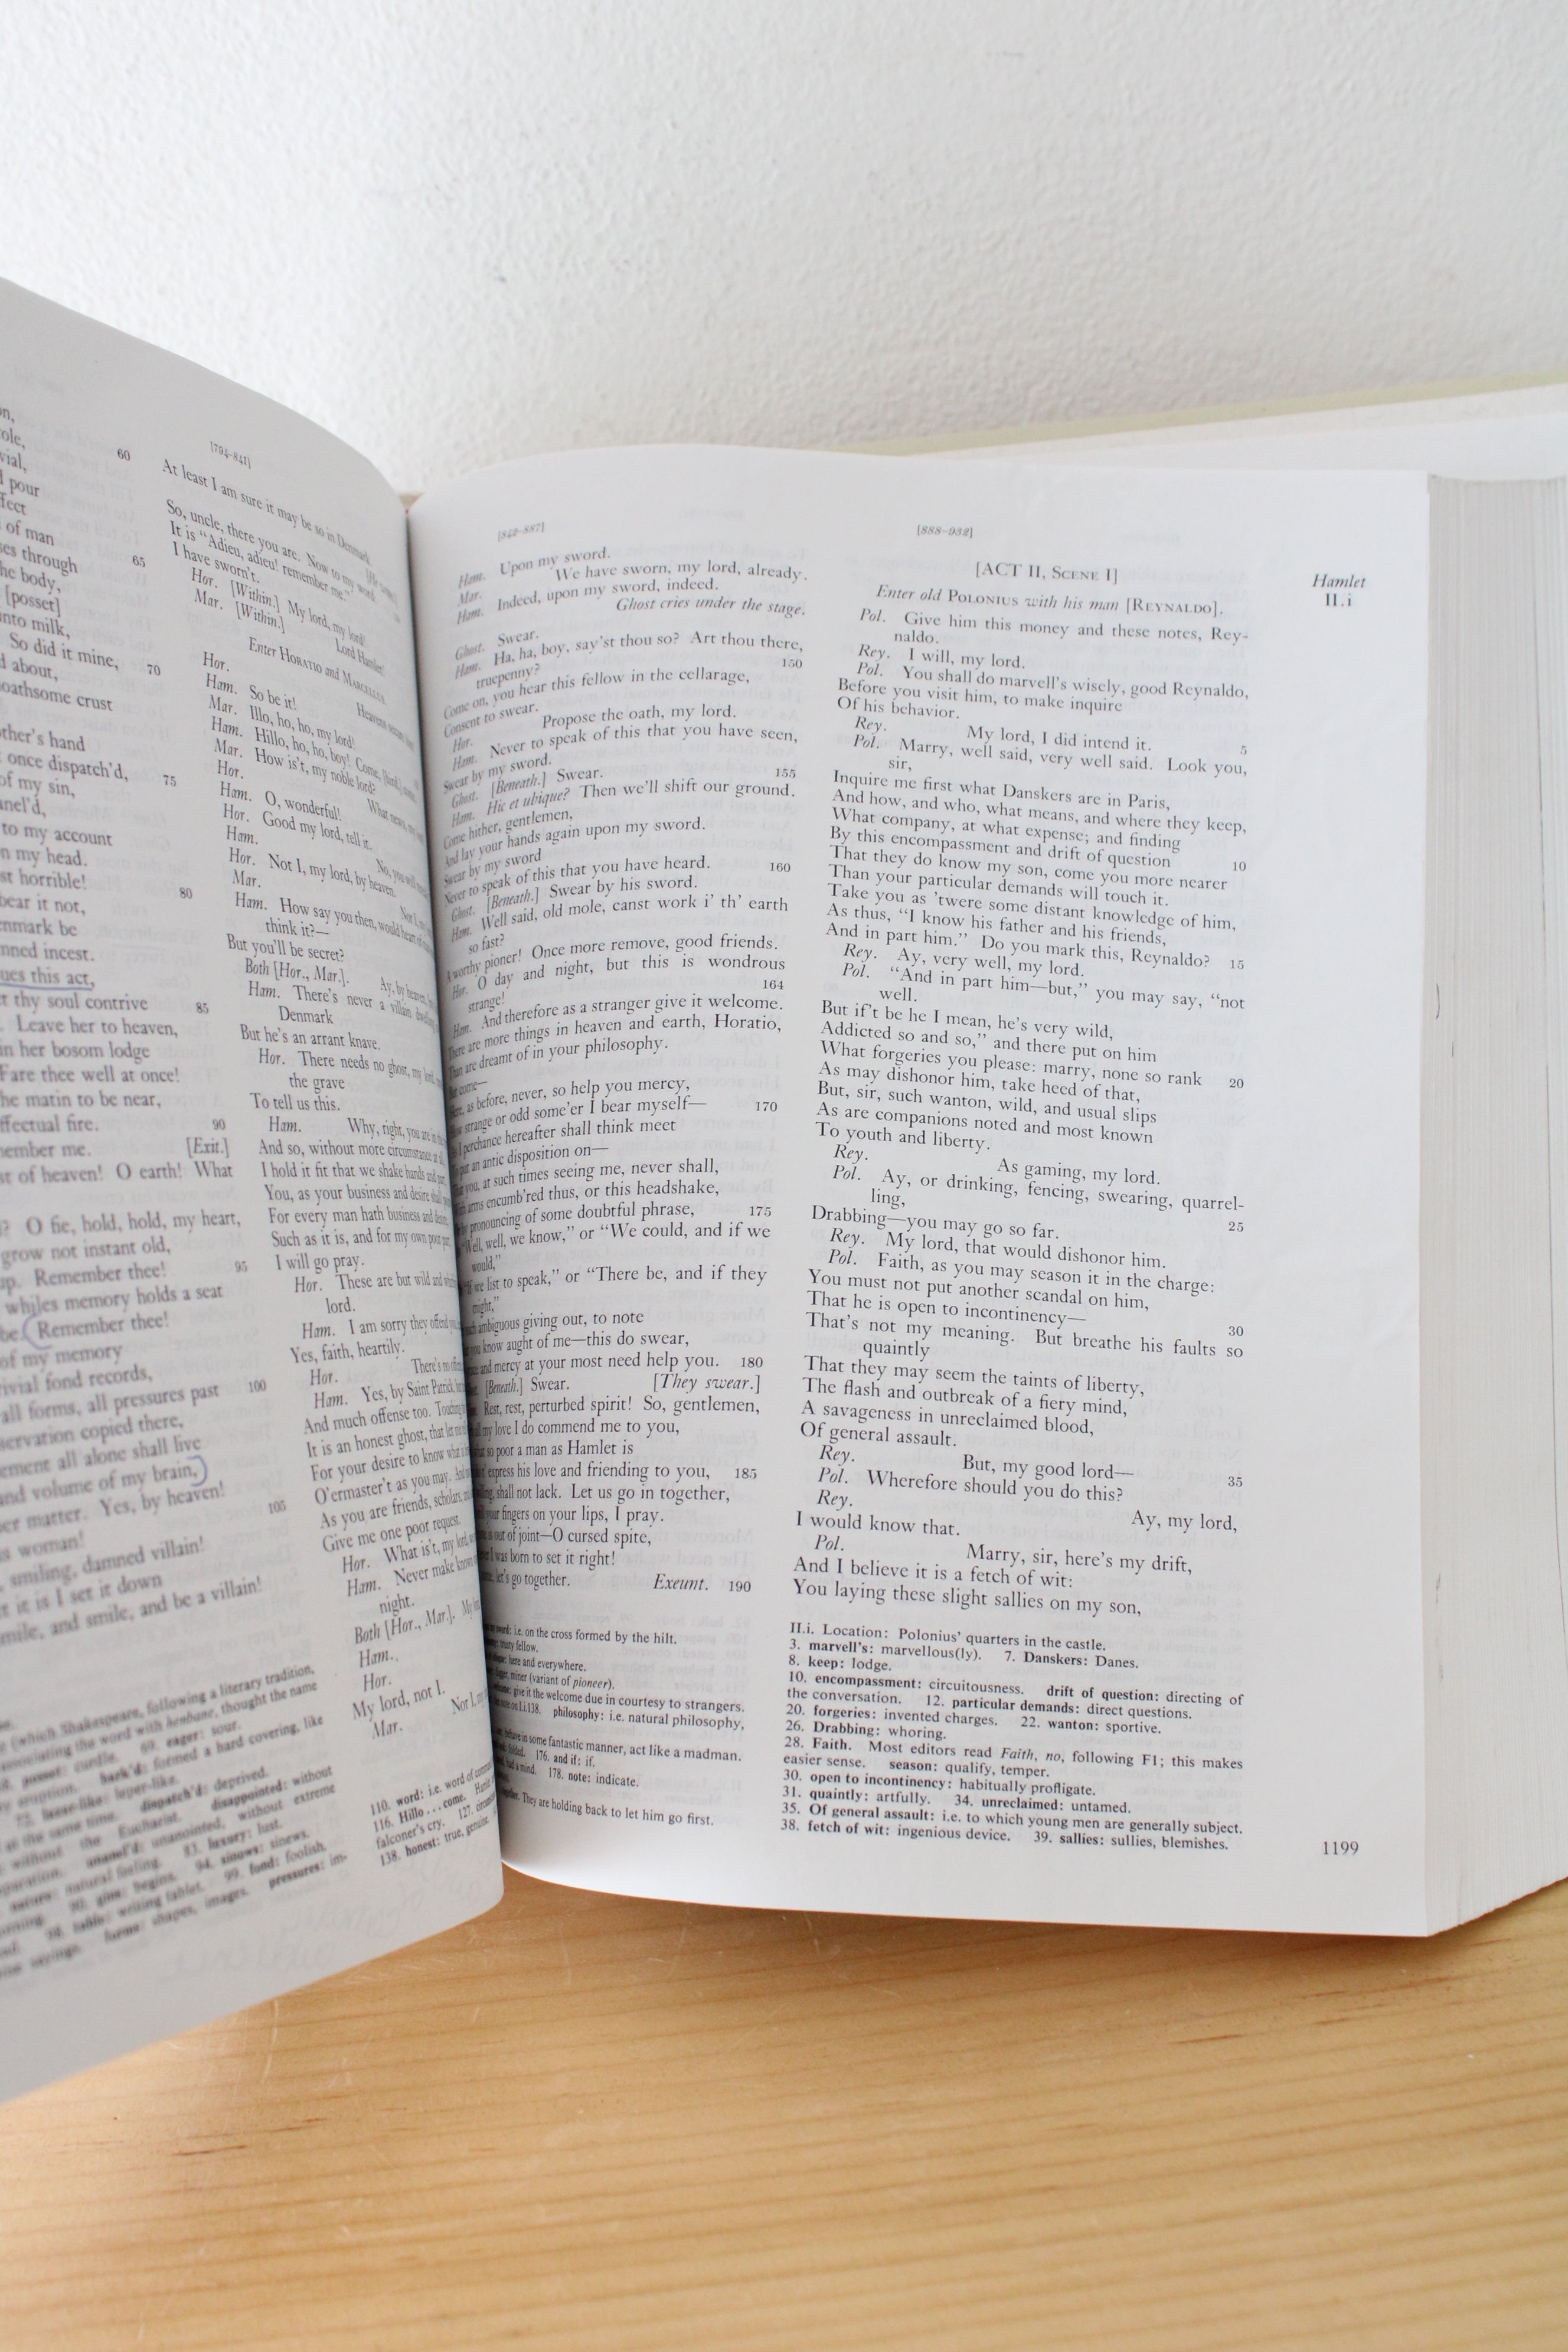 on,
ole,
vial,
l pour
ffect
of man
ses through
he body,
[posset]
nto milk,
So did it mine,
d about,
oathsome crust
other's hand
once dispatch'd,
of my sin,
anel'd,
to my account
n my head.
st horrible!
bear it not,
enmark be
mned incest.
ues this act,
t thy soul contrive
Leave her to heaven,
in her bosom lodge
Fare thee well at once!
he matin to be near,
ffectual fire.
member me. [Exit.]
st of heaven! O earth! What
? O fie, hold, hold, my heart,
grow not instant old,
up. Remember thee!
whiles memory holds a seat
be. Remember thee!
of my memory
rivial fond records,
all forms, all pressures past
servation copied there,
ement all alone shall live
and volume of my brain,
er matter. Yes, by heaven!
s woman!
, smiling, damned villain!
t it is I set it down
mile, and smile, and be a villain!
60
65
70
75
80
85
90
95
100
105
(which Shakespeare, following a literary tradition,
associating the word with henbane, thought the name
posset: curdle. 69. eager: sour.
eruption. bark'd: formed a hard covering, like
72. lazar-like: leper-like.
at the same time. dispatch'd: deprived.
without the Eucharist. disappointed: without
unanel'd: unanointed, without extreme
nature: natural feeling. 83. luxury: lust.
gins: begins. 94. sinows: sinews.
table: writing tablet. 99. fond: foolish.
sayings. forms: shapes, images. pressures: im-
[794–841]
At least I am sure it may be so in Denmark.
So, uncle, there you are. Now to my word:
It is "Adieu, adieu! remember me."
I have sworn't.
Hor. [Within.] My lord, my lord!
Mar. [Within.] Lord Hamlet!
Enter HORATIO and MARCELLUS.
Hor. Heavens secure
Ham. So be it!
Mar. Illo, ho, ho, my lord!
Ham. Hillo, ho, ho, boy! Come, [bird,] come.
Mar. How is't, my noble lord?
Hor. What news,
Ham. O, wonderful!
Hor. Good my lord, tell it.
Ham. No, you will
Hor. Not I, my lord, by heaven.
Mar. Nor I,
Ham. How say you then, would heart of
think it?—
But you'll be secret?
Both [Hor., Mar.]. Ay, by heaven,
Ham. There's never a villain dwelling
Denmark
But he's an arrant knave.
Hor. There needs no ghost, my lord,
the grave
To tell us this.
Ham. Why, right, you are in
And so, without more circumstance at all,
I hold it fit that we shake hands and part,
You, as your business and desire shall
For every man hath business and desire,
Such as it is, and for my own poor part,
I will go pray.
Hor. These are but wild and
lord.
Ham. I am sorry they offend you,
Yes, faith, heartily.
Hor. There's no
Ham. Yes, by Saint Patrick,
And much offense too. Touching
It is an honest ghost, that let me
For your desire to know what
O'ermaster't as you may. And
As you are friends, scholars,
Give me one poor request.
Hor. What is't, my lord,
Ham. Never make known
night.
Both [Hor., Mar.]. My
Ham.
Hor.
My lord, not I.
Mar. Nor I,
110. word: i.e. word of
116. Hillo . . . come.
falconer's cry. 127.
138. honest: true, genuine.
[842–887]
Ham. Upon my sword.
Mar. We have sworn, my lord, already.
Ham. Indeed, upon my sword, indeed.
Ghost cries under the stage.
Ghost. Swear.
Ham. Ha, ha, boy, say'st thou so? Art thou there,
truepenny? 150
Come on, you hear this fellow in the cellarage,
Consent to swear.
Hor. Propose the oath, my lord.
Ham. Never to speak of this that you have seen,
Swear by my sword.
Ghost. [Beneath.] Swear. 155
Ham. Hic et ubique? Then we'll shift our ground.
Come hither, gentlemen,
And lay your hands again upon my sword.
Swear by my sword
Never to speak of this that you have heard. 160
Ghost. [Beneath.] Swear by his sword.
Ham. Well said, old mole, canst work i' th' earth
so fast?
A worthy pioner! Once more remove, good friends.
Hor. O day and night, but this is wondrous
strange! 164
Ham. And therefore as a stranger give it welcome.
There are more things in heaven and earth, Horatio,
Than are dreamt of in your philosophy.
But come—
Here, as before, never, so help you mercy,
How strange or odd some'er I bear myself— 170
As I perchance hereafter shall think meet
To put an antic disposition on—
That you, at such times seeing me, never shall,
With arms encumb'red thus, or this headshake,
Or by pronouncing of some doubtful phrase, 175
As "Well, well, we know," or "We could, and if we
would,"
Or "If we list to speak," or "There be, and if they
might,"
such ambiguous giving out, to note
you know aught of me—this do swear,
and mercy at your most need help you. 180
[Beneath.] Swear. [They swear.]
Rest, rest, perturbed spirit! So, gentlemen,
all my love I do commend me to you,
what so poor a man as Hamlet is
express his love and friending to you, 185
shall not lack. Let us go in together,
your fingers on your lips, I pray.
is out of joint—O cursed spite,
I was born to set it right!
let's go together. Exeunt. 190
sword: i.e. on the cross formed by the hilt.
trusty fellow.
here and everywhere.
digger, miner (variant of pioneer).
give it the welcome due in courtesy to strangers.
note on I.i.138. philosophy: i.e. natural philosophy,
behave in some fantastic manner, act like a madman.
folded. 176. and if: if.
had a mind. 178. note: indicate.
together. They are holding back to let him go first.
[888–932]
[ACT II, SCENE I]
Enter old POLONIUS with his man [REYNALDO].
Pol. Give him this money and these notes, Rey-
naldo.
Rey. I will, my lord.
Pol. You shall do marvell's wisely, good Reynaldo,
Before you visit him, to make inquire
Of his behavior.
Rey. My lord, I did intend it. 5
Pol. Marry, well said, very well said. Look you,
sir,
Inquire me first what Danskers are in Paris,
And how, and who, what means, and where they keep,
What company, at what expense; and finding
By this encompassment and drift of question 10
That they do know my son, come you more nearer
Than your particular demands will touch it.
Take you as 'twere some distant knowledge of him,
As thus, "I know his father and his friends,
And in part him." Do you mark this, Reynaldo? 15
Rey. Ay, very well, my lord.
Pol. "And in part him—but," you may say, "not
well.
But if't be he I mean, he's very wild,
Addicted so and so," and there put on him
What forgeries you please: marry, none so rank 20
As may dishonor him, take heed of that,
But, sir, such wanton, wild, and usual slips
As are companions noted and most known
To youth and liberty.
Rey. As gaming, my lord.
Pol. Ay, or drinking, fencing, swearing, quarrel-
ling, 25
Drabbing—you may go so far.
Rey. My lord, that would dishonor him.
Pol. Faith, as you may season it in the charge:
You must not put another scandal on him,
That he is open to incontinency— 30
That's not my meaning. But breathe his faults so
quaintly
That they may seem the taints of liberty,
The flash and outbreak of a fiery mind,
A savageness in unreclaimed blood,
Of general assault.
Rey. But, my good lord— 35
Pol. Wherefore should you do this?
Rey. Ay, my lord,
I would know that.
Pol. Marry, sir, here's my drift,
And I believe it is a fetch of wit:
You laying these slight sallies on my son,
II.i. Location: Polonius' quarters in the castle.
3. marvell's: marvellous(ly). 7. Danskers: Danes.
8. keep: lodge.
10. encompassment: circuitousness. drift of question: directing of
the conversation. 12. particular demands: direct questions.
20. forgeries: invented charges. 22. wanton: sportive.
26. Drabbing: whoring.
28. Faith. Most editors read Faith, no, following F1; this makes
easier sense. season: qualify, temper.
30. open to incontinency: habitually profligate.
31. quaintly: artfully. 34. unreclaimed: untamed.
35. Of general assault: i.e. to which young men are generally subject.
38. fetch of wit: ingenious device. 39. sallies: sullies, blemishes.
Hamlet
II.i
1199